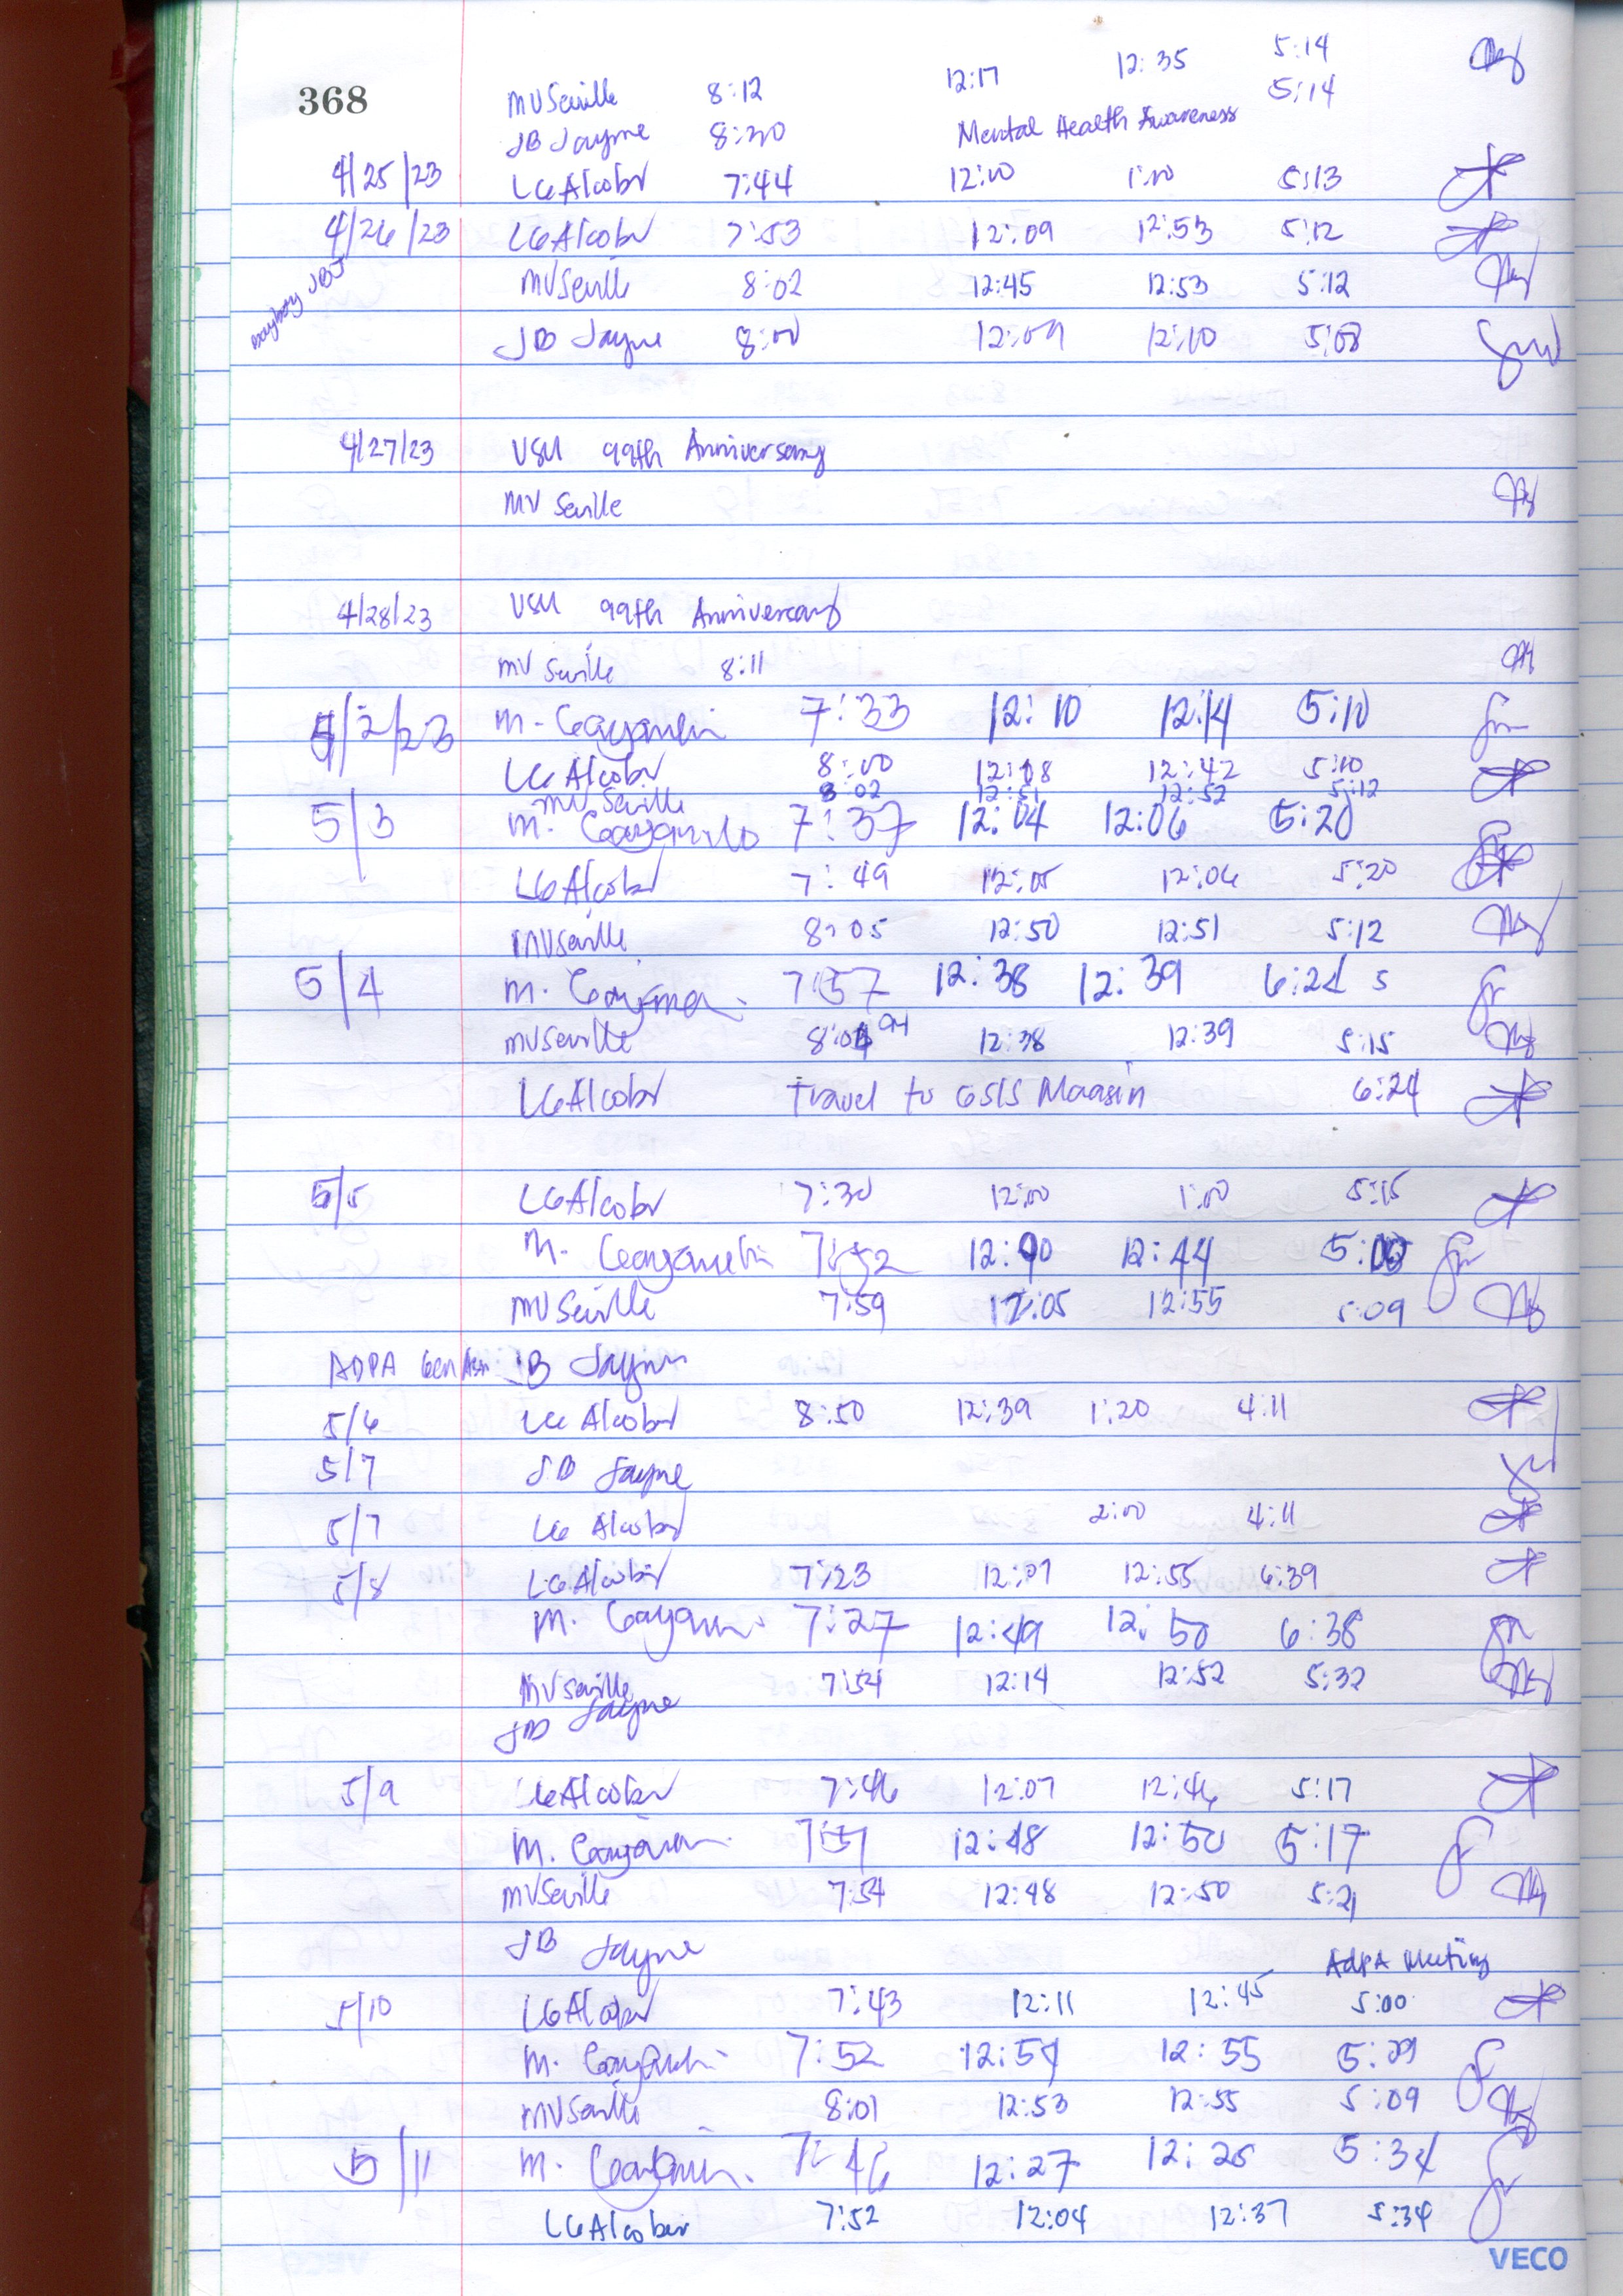 368
MV Seville 8:12 12:17 12:35 5:14
JB Jayme 8:20 Mental Health Awareness 5:14
4/25/23 LG Alcober 7:44 12:00 1:00 5:13
4/26/23 LG Alcober 7:53 12:09 12:53 5:12
MV Seville 8:02 12:45 12:53 5:12
JBJ
JB Jayme 8:00 12:09 12:10 5:08
4/27/23 VSU 99th Anniversary
MV Seville
4/28/23 VSU 99th Anniversary
MV Seville 8:11
5/2/23 M. 7:33 12:10 12:14 5:10
LG Alcober 8:00 12:08 12:42 5:10
MV Seville 8:02 12:51 12:52 5:12
5/3 M. 7:37 12:04 12:06 5:20
LG Alcober 7:49 12:05 12:06 5:20
MV Seville 8:05 12:50 12:51 5:12
5/4 M. 7:57 12:38 12:39 6:24 5
MV Seville 12:38 12:39 5:15
LG Alcober Travel to GSIS Maasin 6:24
5/5 LG Alcober 7:30 12:00 1:00 5:15
M. 7:52 12:44
MV Seville 7:59 12:05 12:55 5:09
ADPA Gen Asm JB Jayme
5/6 LG Alcober 8:50 12:39 1:20 4:11
5/7 JB Jayme
5/7 LG Alcober 2:00 4:11
5/8 LG Alcober 7:23 12:07 12:55 6:39
M. 7:27 12:49 12:50 6:38
MV Seville 7:54 12:14 12:52 5:32
JB Jayme
5/9 LG Alcober 7:46 12:07 12:46 5:17
M. 12:48 12:50 5:17
MV Seville 7:54 12:48 12:50 5:21
JB Jayme AdPA Meeting
5/10 LG Alcober 7:43 12:11 12:45 5:00
M. 7:52 12:54 12:55 5:09
MV Seville 8:01 12:53 12:55 5:09
5/11 M. 7:46 12:27 12:28 5:34
LG Alcober 7:52 12:04 12:37 5:34
VECO